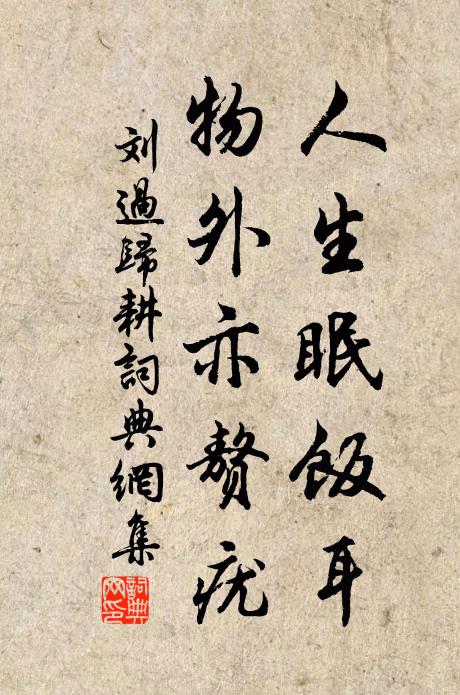 人生眠飯耳
物外亦贅疣
刘過歸耕詞典網集
詞典網印